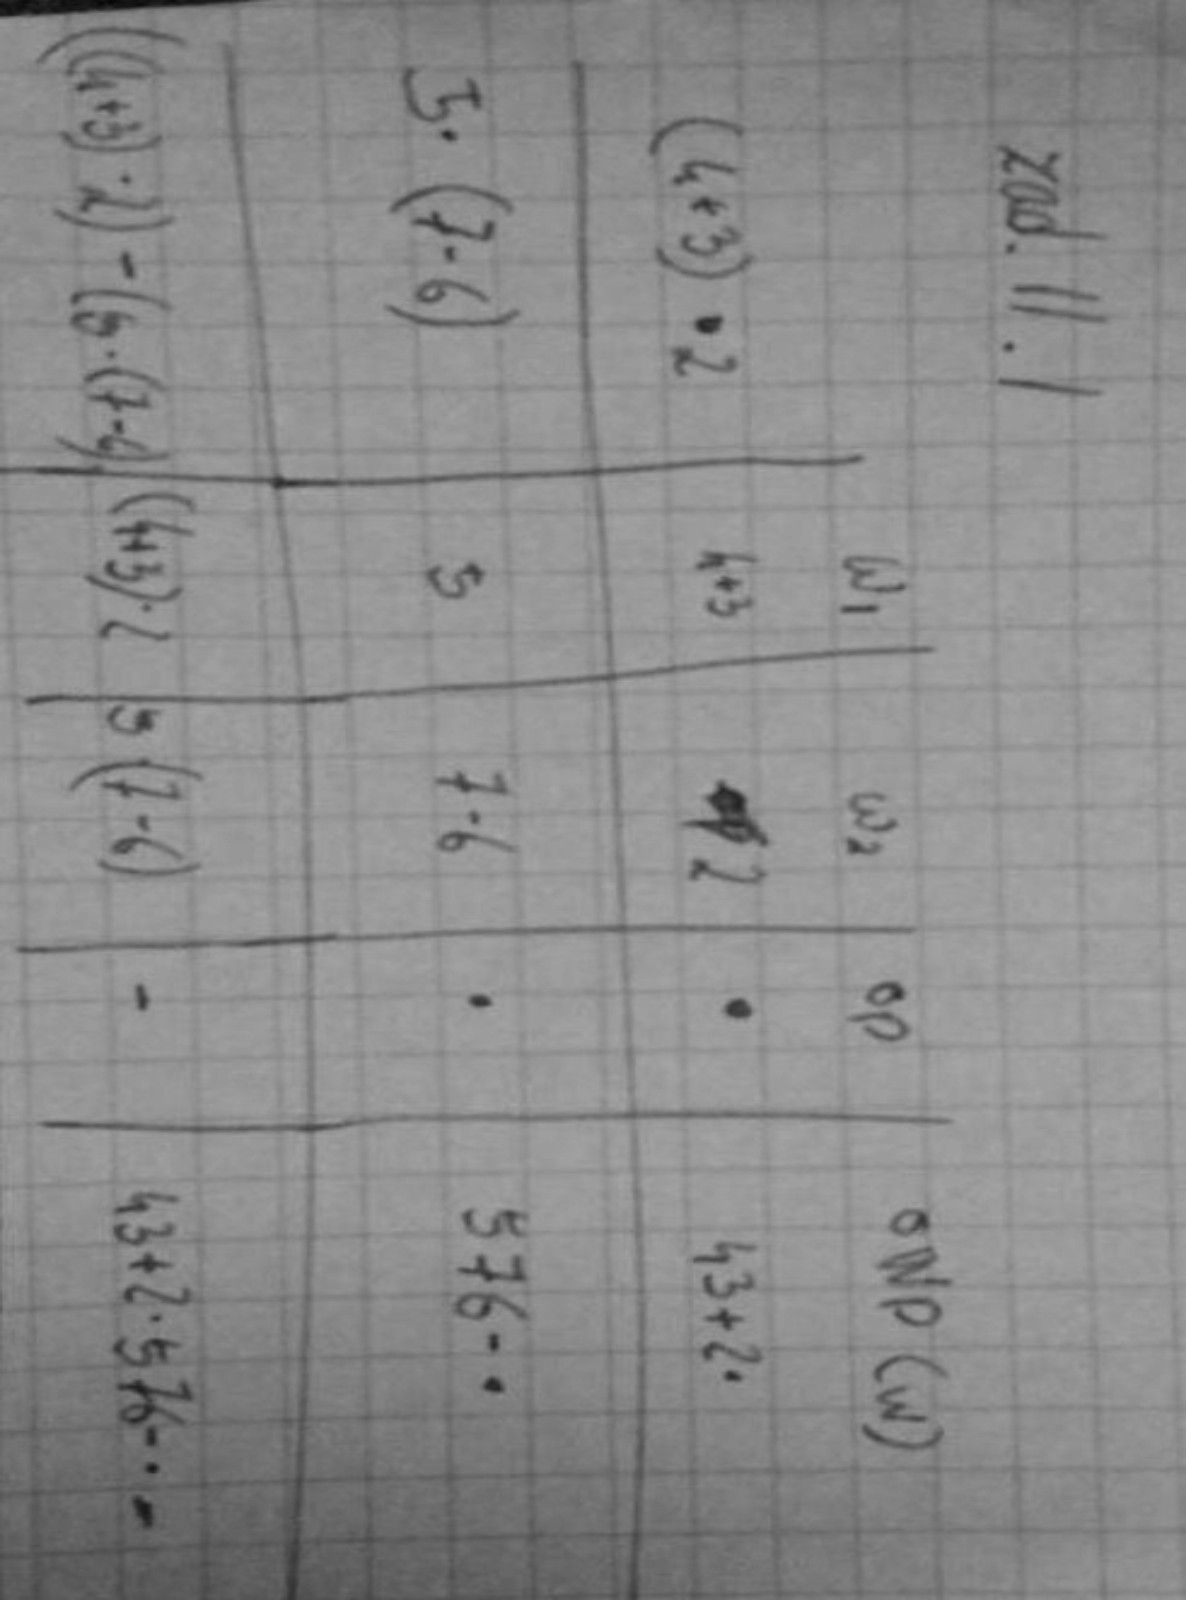 zad. 11.1
w₁ w₂ op ONP (w)
(4+3) • 2 4+3 2 • 43+2·
5· (7-6) 5 7-6 · 576-·
((4+3)·2)-(5·(7-6) (4+3)·2 5 (7-6) - 43+2·576-·-